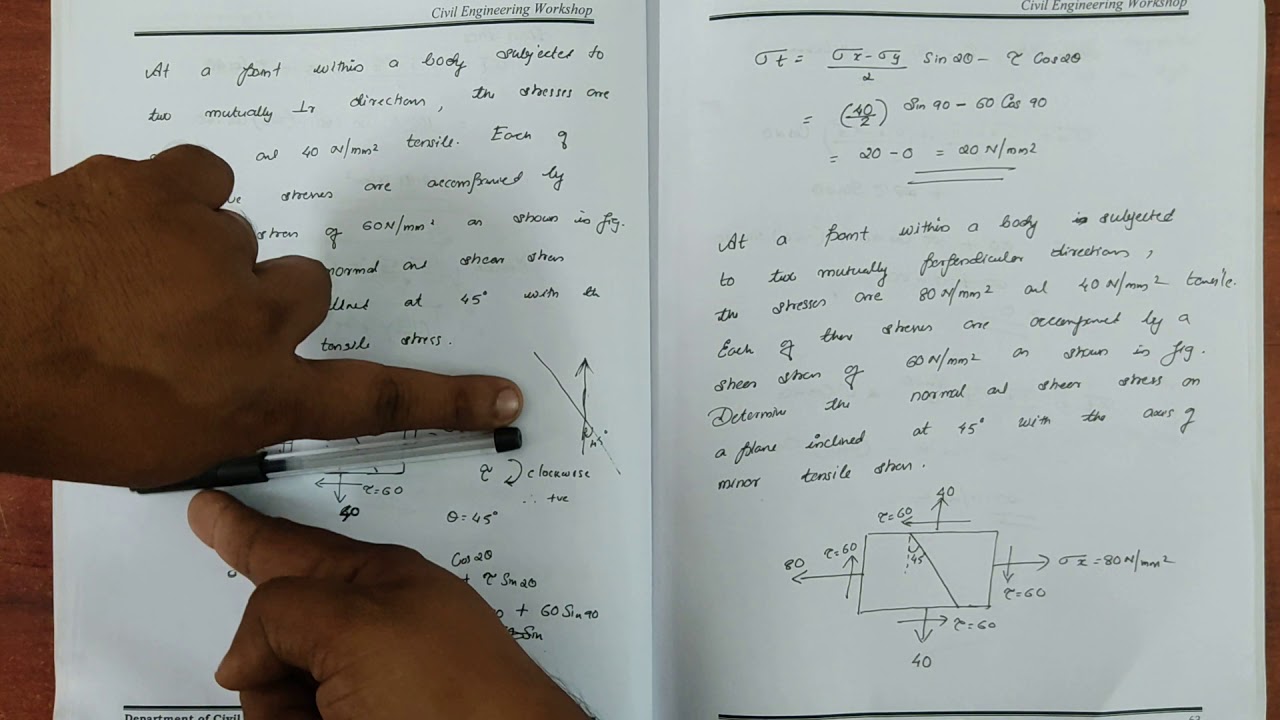 Civil Engineering Workshop
At a point within a body subjected to
two mutually ⊥r direction, the stresses are
and 40 N/mm² tensile. Each of
stresses are accompanied by
of 60N/mm² as shown in fig.
normal and shear stress
at 45° with th
tensile stress.
45°
τ clockwise
∴ +ve
τ=60
40
θ=45°
Cos2θ
τ Sin2θ
+ 60Sin90
Sin
Department of Civil
Civil Engineering Workshop
σt = σx-σy/2 Sin2θ - τ Cos2θ
= (40/2) Sin 90 - 60 Cos 90
= 20 - 0 = 20 N/mm²
At a point within a body is subjected
to two mutually perpendicular directions,
the stresses are 80N/mm² and 40N/mm² tensile.
Each of ther stresses are accompained by a
sheer stress of 60N/mm² as shown in fig.
Determine the normal and sheer stress on
a plane inclined at 45° with the axis of
minor tensile stress.
40
τ=60
80
τ=60
45
σx=80N/mm²
τ=60
τ=60
40
63